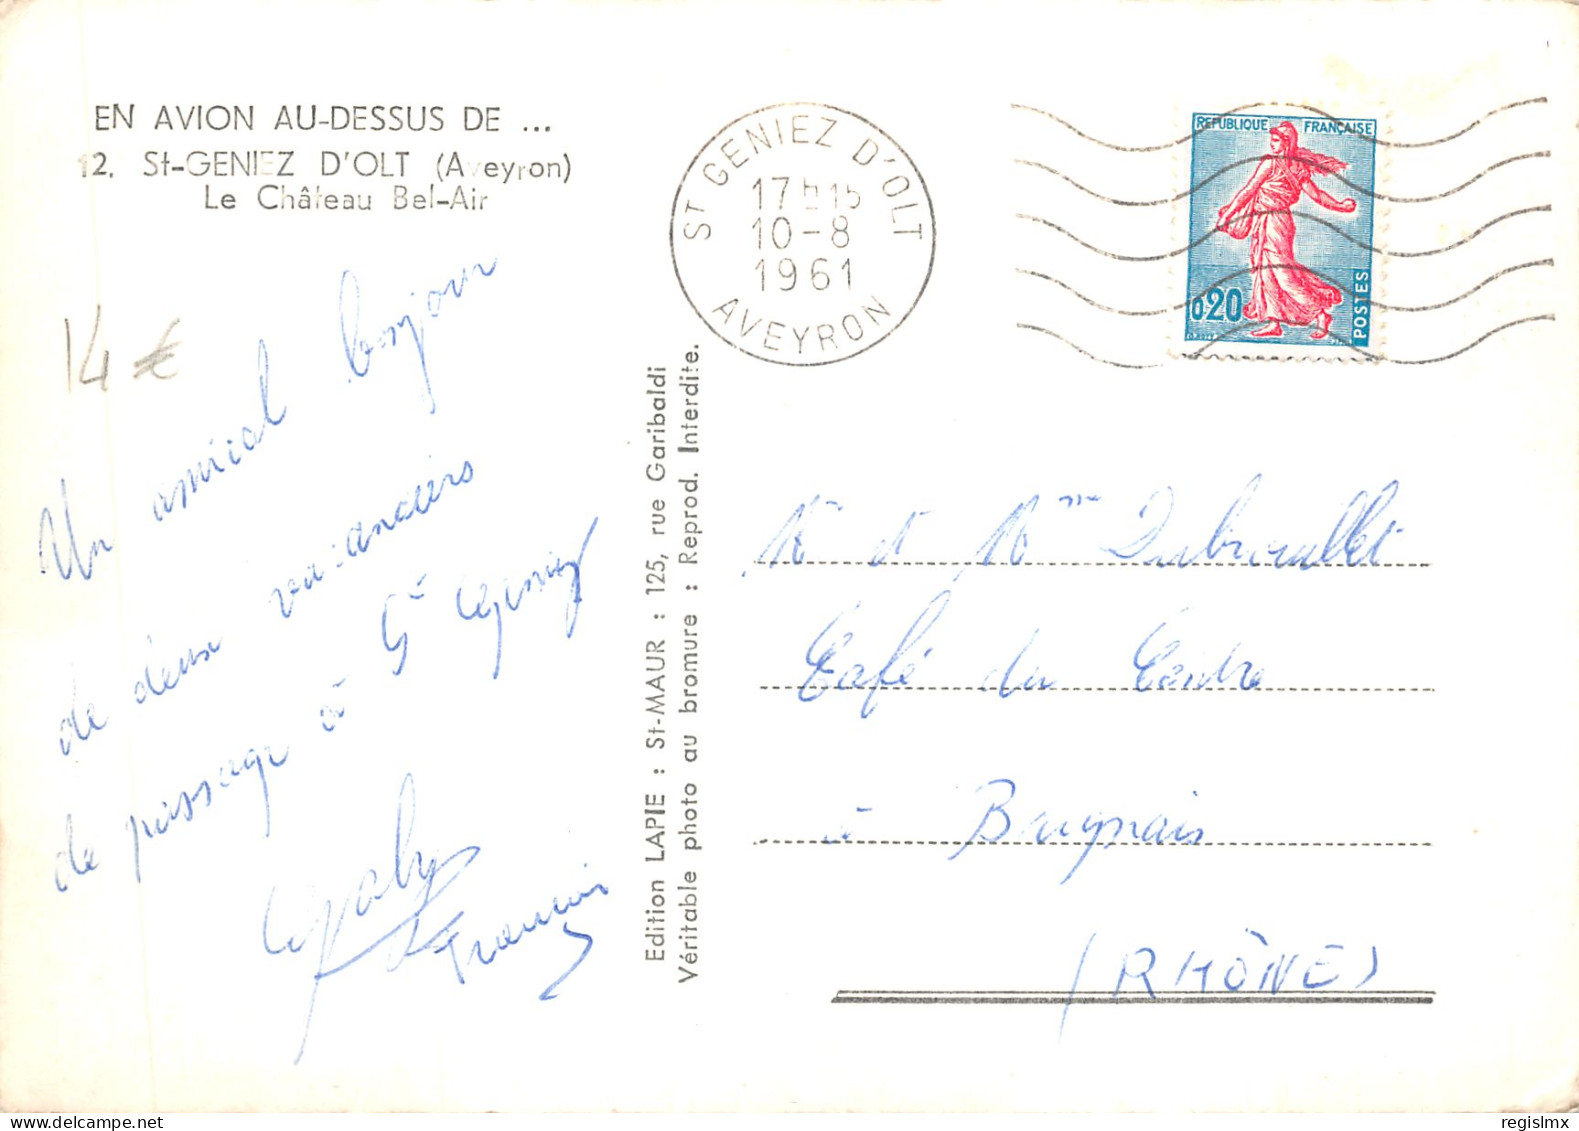 EN AVION AU-DESSUS DE ...
12. St-GENIEZ D'OLT (Aveyron)
Le Château Bel-Air
14 €
Un amical bonjour
de deux vacanciers
de passage à St Geniez
Gaby
Francis
Edition LAPIE : St-MAUR : 125, rue Garibaldi
Véritable photo au bromure : Reprod. Interdite.
ST GENIEZ D'OLT
17 H 15
10-8
1961
AVEYRON
REPUBLIQUE FRANÇAISE
0,20
POSTES
M et Mme
Café du Centre
à Brignais
(RHÔNE)
regislmx